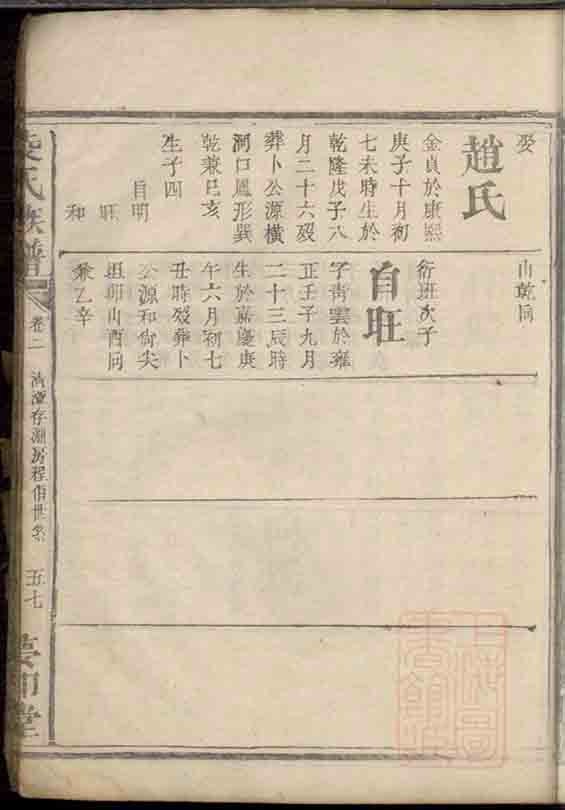 娶
趙氏
金貞於康熙
庚子十月初
七未時生於
乾隆戊子八
月二十六歿
葬卜公源橫
洞口鳳形巽
乾兼巳亥
生子四
自明
旺
和
山乾同
衍班次子
自旺
字靑雲於雍
正壬子九月
二十三辰時
生於嘉慶庚
午六月初七
丑時歿葬卜
公源和尙尖
祖卯山酉同
兼乙辛
氏族譜
卷二
五七